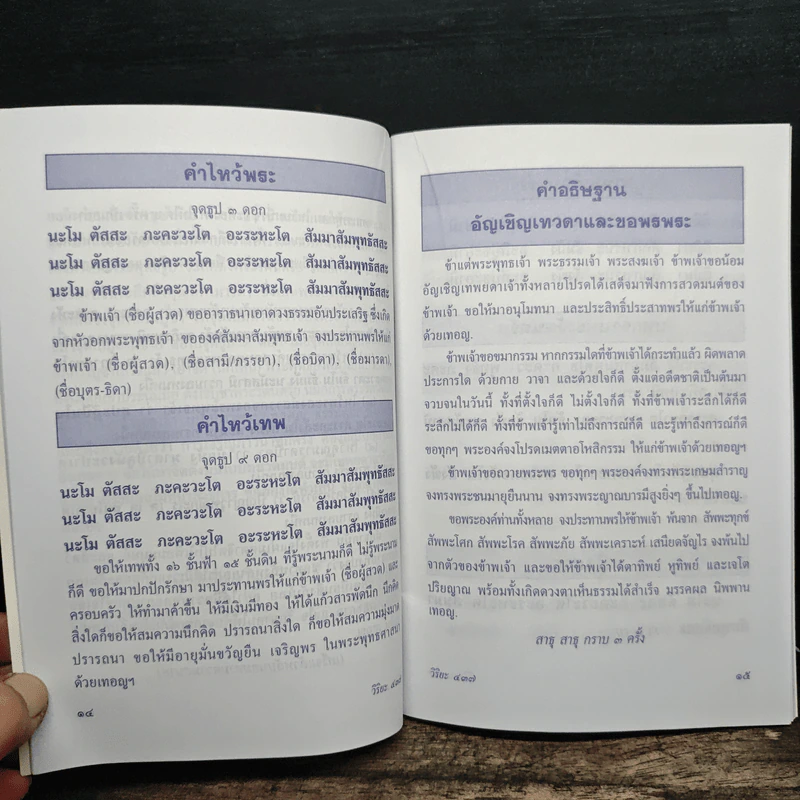 คำไหว้พระ
จุดธูป ๓ ดอก
นะโม ตัสสะ ภะคะวะโต อะระหะโต สัมมาสัมพุทธัสสะ
นะโม ตัสสะ ภะคะวะโต อะระหะโต สัมมาสัมพุทธัสสะ
นะโม ตัสสะ ภะคะวะโต อะระหะโต สัมมาสัมพุทธัสสะ
ข้าพเจ้า (ชื่อผู้สวด) ขออาราธนาเอาดวงธรรมอันประเสริฐ ซึ่งเกิด
จากหัวอกพระพุทธเจ้า ขอองค์สัมมาสัมพุทธเจ้า จงประทานพรให้แก่
ข้าพเจ้า (ชื่อผู้สวด), (ชื่อสามี/ภรรยา), (ชื่อบิดา), (ชื่อมารดา),
(ชื่อบุตร-ธิดา)
คำไหว้เทพ
จุดธูป ๙ ดอก
นะโม ตัสสะ ภะคะวะโต อะระหะโต สัมมาสัมพุทธัสสะ
นะโม ตัสสะ ภะคะวะโต อะระหะโต สัมมาสัมพุทธัสสะ
นะโม ตัสสะ ภะคะวะโต อะระหะโต สัมมาสัมพุทธัสสะ
ขอให้เทพทั้ง ๑๖ ชั้นฟ้า ๑๕ ชั้นดิน ที่รู้พระนามก็ดี ไม่รู้พระนาม
ก็ดี ขอให้มาปกปักรักษา มาประทานพรให้แก่ข้าพเจ้า (ชื่อผู้สวด) และ
ครอบครัว ให้ทำมาค้าขึ้น ให้มีเงินมีทอง ให้ได้แก้วสารพัดนึก นึกคิด
สิ่งใดก็ขอให้สมความนึกคิด ปรารถนาสิ่งใด ก็ขอให้สมความมุ่งมาด
ปรารถนา ขอให้มีอายุมั่นขวัญยืน เจริญพร ในพระพุทธศาสนา
ด้วยเทอญฯ
วิริยะ ๔๓๗
๑๔
คำอธิษฐาน
อัญเชิญเทวดาและขอพรพระ
ข้าแต่พระพุทธเจ้า พระธรรมเจ้า พระสงฆเจ้า ข้าพเจ้าขอน้อม
อัญเชิญเทพยดาเจ้าทั้งหลายโปรดได้เสด็จมาฟังการสวดมนต์ของ
ข้าพเจ้า ขอให้มาอนุโมทนา และประสิทธิ์ประสาทพรให้แก่ข้าพเจ้า
ด้วยเทอญ.
ข้าพเจ้าขอขมากรรม หากกรรมใดที่ข้าพเจ้าได้กระทำแล้ว ผิดพลาด
ประการใด ด้วยกาย วาจา และด้วยใจก็ดี ตั้งแต่อดีตชาติเป็นต้นมา
จวบจนในวันนี้ ทั้งที่ตั้งใจก็ดี ไม่ตั้งใจก็ดี ทั้งที่ข้าพเจ้าระลึกได้ก็ดี
ระลึกไม่ได้ก็ดี ทั้งที่ข้าพเจ้ารู้เท่าไม่ถึงการณ์ก็ดี และรู้เท่าถึงการณ์ก็ดี
ขอทุกๆ พระองค์จงโปรดเมตตาอโหสิกรรม ให้แก่ข้าพเจ้าด้วยเทอญฯ
ข้าพเจ้าขอถวายพระพร ขอทุกๆ พระองค์จงทรงพระเกษมสำราญ
จงทรงพระชนมายุยืนนาน จงทรงพระญาณบารมีสูงยิ่งๆ ขึ้นไปเทอญ.
ขอพระองค์ท่านทั้งหลาย จงประทานพรให้ข้าพเจ้า พ้นจาก สัพพะทุกข์
สัพพะโศก สัพพะโรค สัพพะภัย สัพพะเคราะห์ เสนียดจัญไร จงพ้นไป
จากตัวของข้าพเจ้า และขอให้ข้าพเจ้าได้ตาทิพย์ หูทิพย์ และเจโต
ปริยญาณ พร้อมทั้งเกิดดวงตาเห็นธรรมได้สำเร็จ มรรคผล นิพพาน
เทอญ.
สาธุ สาธุ กราบ ๓ ครั้ง
วิริยะ ๔๓๗
๑๕